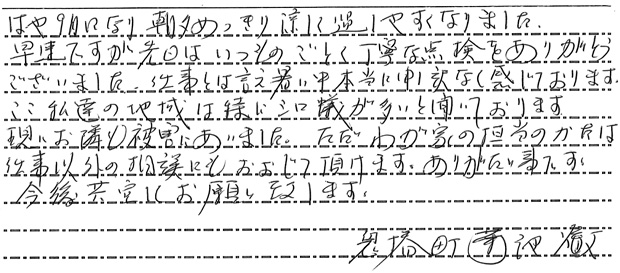 はや9月になり朝夕めっきり涼しく過しやすくなりました。
早速ですが先日はいつものごとく丁寧な点検をありがとう
ございました。仕事とは言え暑い中本当に申訳なく感じております。
ここ私達の地域は緑にシロ蟻が多いと聞いております
現にお隣も被害にあいました。ただわが家の担当のかたは
仕事以外の相談にもおおじて頂けます。ありがたい事です。
今後共宜しくお願い致します。
町 菊池